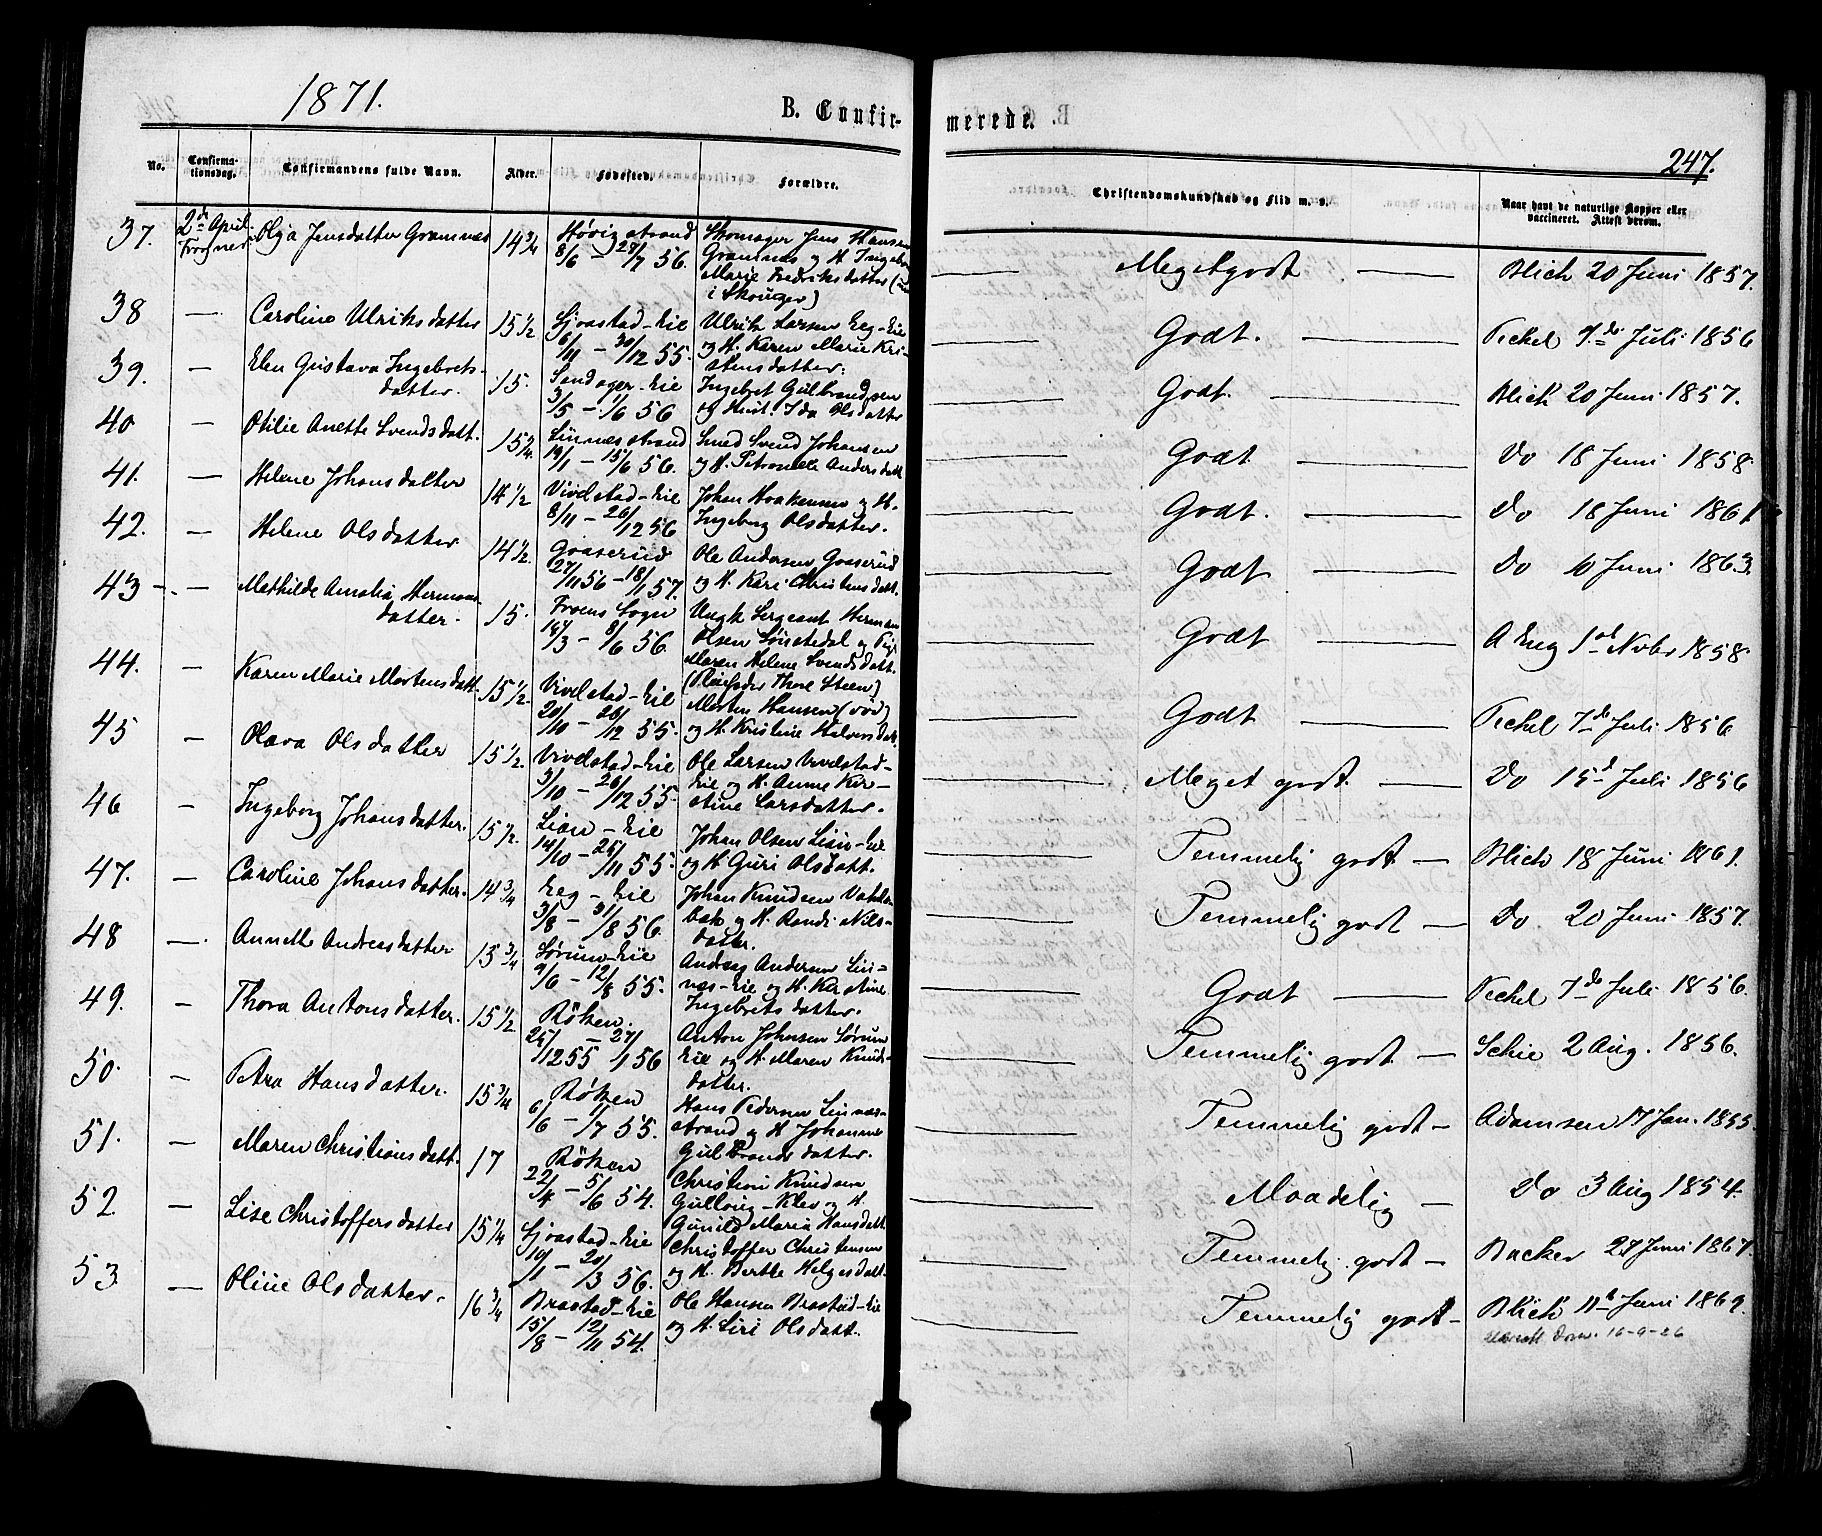 1871.
B. Confir- merede.
247.
No. Confirma-tionsdag. Confirmandens fulde Navn. Alder. Fødested. Forældre. Christendomskundskab og Flid m. v. Naar havt de naturlige Kopper eller vaccineret. Attest derom.
37. 2den April Frogner Olga Jensdatter Gramnes 14 3/4 Høvigstrand Skomager Jens Hansen
8/6 – 27/7 56. Gramnæs og H. Ingeb
Marie Fredriksdatter
i Skouger)
Meget godt — Blich 20 Juni 1857.
38 — Caroline Ulriksdatter 15 1/2 Sjvastad-Eie Ulrik Larsen Eeg-Eie
6/11 – 30/12 55. og H. Karen Marie Kri-
stensdatter.
Godt. — Pechel 7de Juli 1856
39. — Elen Gustava Ingebrets-
datter. 15. Sandager-Eie Ingebret Gulbrandsen
3/5 – 1/6 56 og Hust. Ida Olsdatter
Godt. — Blich 20 Juni 1857.
40 — Otilie Anette Svendsdatt. 15 1/4 Linnesstrand Smed Svend Johansen
19/1 – 15/6 56. og H. Petronelle Andersdatt
Godt — Do 18 Juni 1858
41. — Helene Johansdatter 14 1/2 Vivelstad-Eie Johan Haakensen og H.
8/11 – 26/12 56 Ingeborg Olsdatter.
Godt. — Do 18 Juni 1861
42. — Helene Olsdatter 14 1/2. Gaaserud Ole Andersen Gaaserud
27/11 56 – 18/1 57. og H. Kari Christensdatt.
Godt — Do 10 Juni 1863.
43 — Mathilde Amalia Hermans
datter. 15. Froens Sogn Ungk Sergeant Herman
/3 – 8/6 56. Olsen Sønstedal og Pige
Maren Helene Svendsdatt.
(Pleiefader Thore Steen)
Godt — A Eng 1ste Novbr 1858
44. — Karen Marie Mortensdatt. 15 1/2. Vivelstad-Eie Morten Hansen (død)
20/10 – 26/12 55. og H. Kristine Halvorsdatt.
Godt — Pechel 7de Juli 1856
45 — Olava Olsdatter 15 1/2. Vivelstad-Eie Ole Larsen Vivelstad-
3/10 – 26/12 55. Eie og H. Anne Kir-
stine Larsdatter.
Meget godt. — Do 15d Juli 1856
46 — Ingeborg Johansdatter. 15 1/2. Lian-Eie Johan Olsen Lian-Eie
14/10 – 25/11 55. og H. Guri Olsdatt.
Temmelig godt — Blich 18 Juni 1861.
47. — Caroline Johansdatter. 14 3/4 Eeg-Eie Johan Knudsen
3/8 – 31/8 56. bak og H. Randi Nils-
datter.
Temmelig godt — Do 20 Juni 1857.
48 — Annette Andreasdatter 15 3/4 Sørum-Eie Andreas Andersen Lin-
9/6 – 12/8 55. næs-Eie og H. Kirstine
Ingebretsdatter.
Godt — Pechel 7de Juli 1856.
49. — Thora Antonsdatter. 15 1/2 Røken. Anton Johnsen Sørum
25/12 55 – 27/1 56 Eie og H. Maren Knuds-
datter.
Temmelig godt — Schie 2 Aug. 1856.
50. — Petra Hansdatter. 15 3/4 Røken Hans Pedersen Linnæs-
6/6 – 1/7 55. strand og H Johanne
Gulbrandsdatter.
Temmelig godt — Adamsen 17 Jan. 1855.
51. — Maren Christiansdatt. 17 Røken Christian Knudsen
22/4 – 5/6 54. Gullaug-Klev og H.
Gunild Maria Hansdatt.
Maadelig — Do 3 Aug 1854.
52. — Lise Christoffersdatter 15 1/4 Sjvastad-Eie Christoffer Christensen
10/1 – 20/3 56. og H. Berthe Helgesdatt.
Temmelig godt — Backer 27 Juni 1867.
53 — Oline Olsdatter. 16 3/4 Brastad-Eie Ole Hansen Brastad-Eie
15/8 – 12/11 54. og H. Siri Olsdatt.
Temmelig godt — Blich 11te Juni 1869.
16-9-26